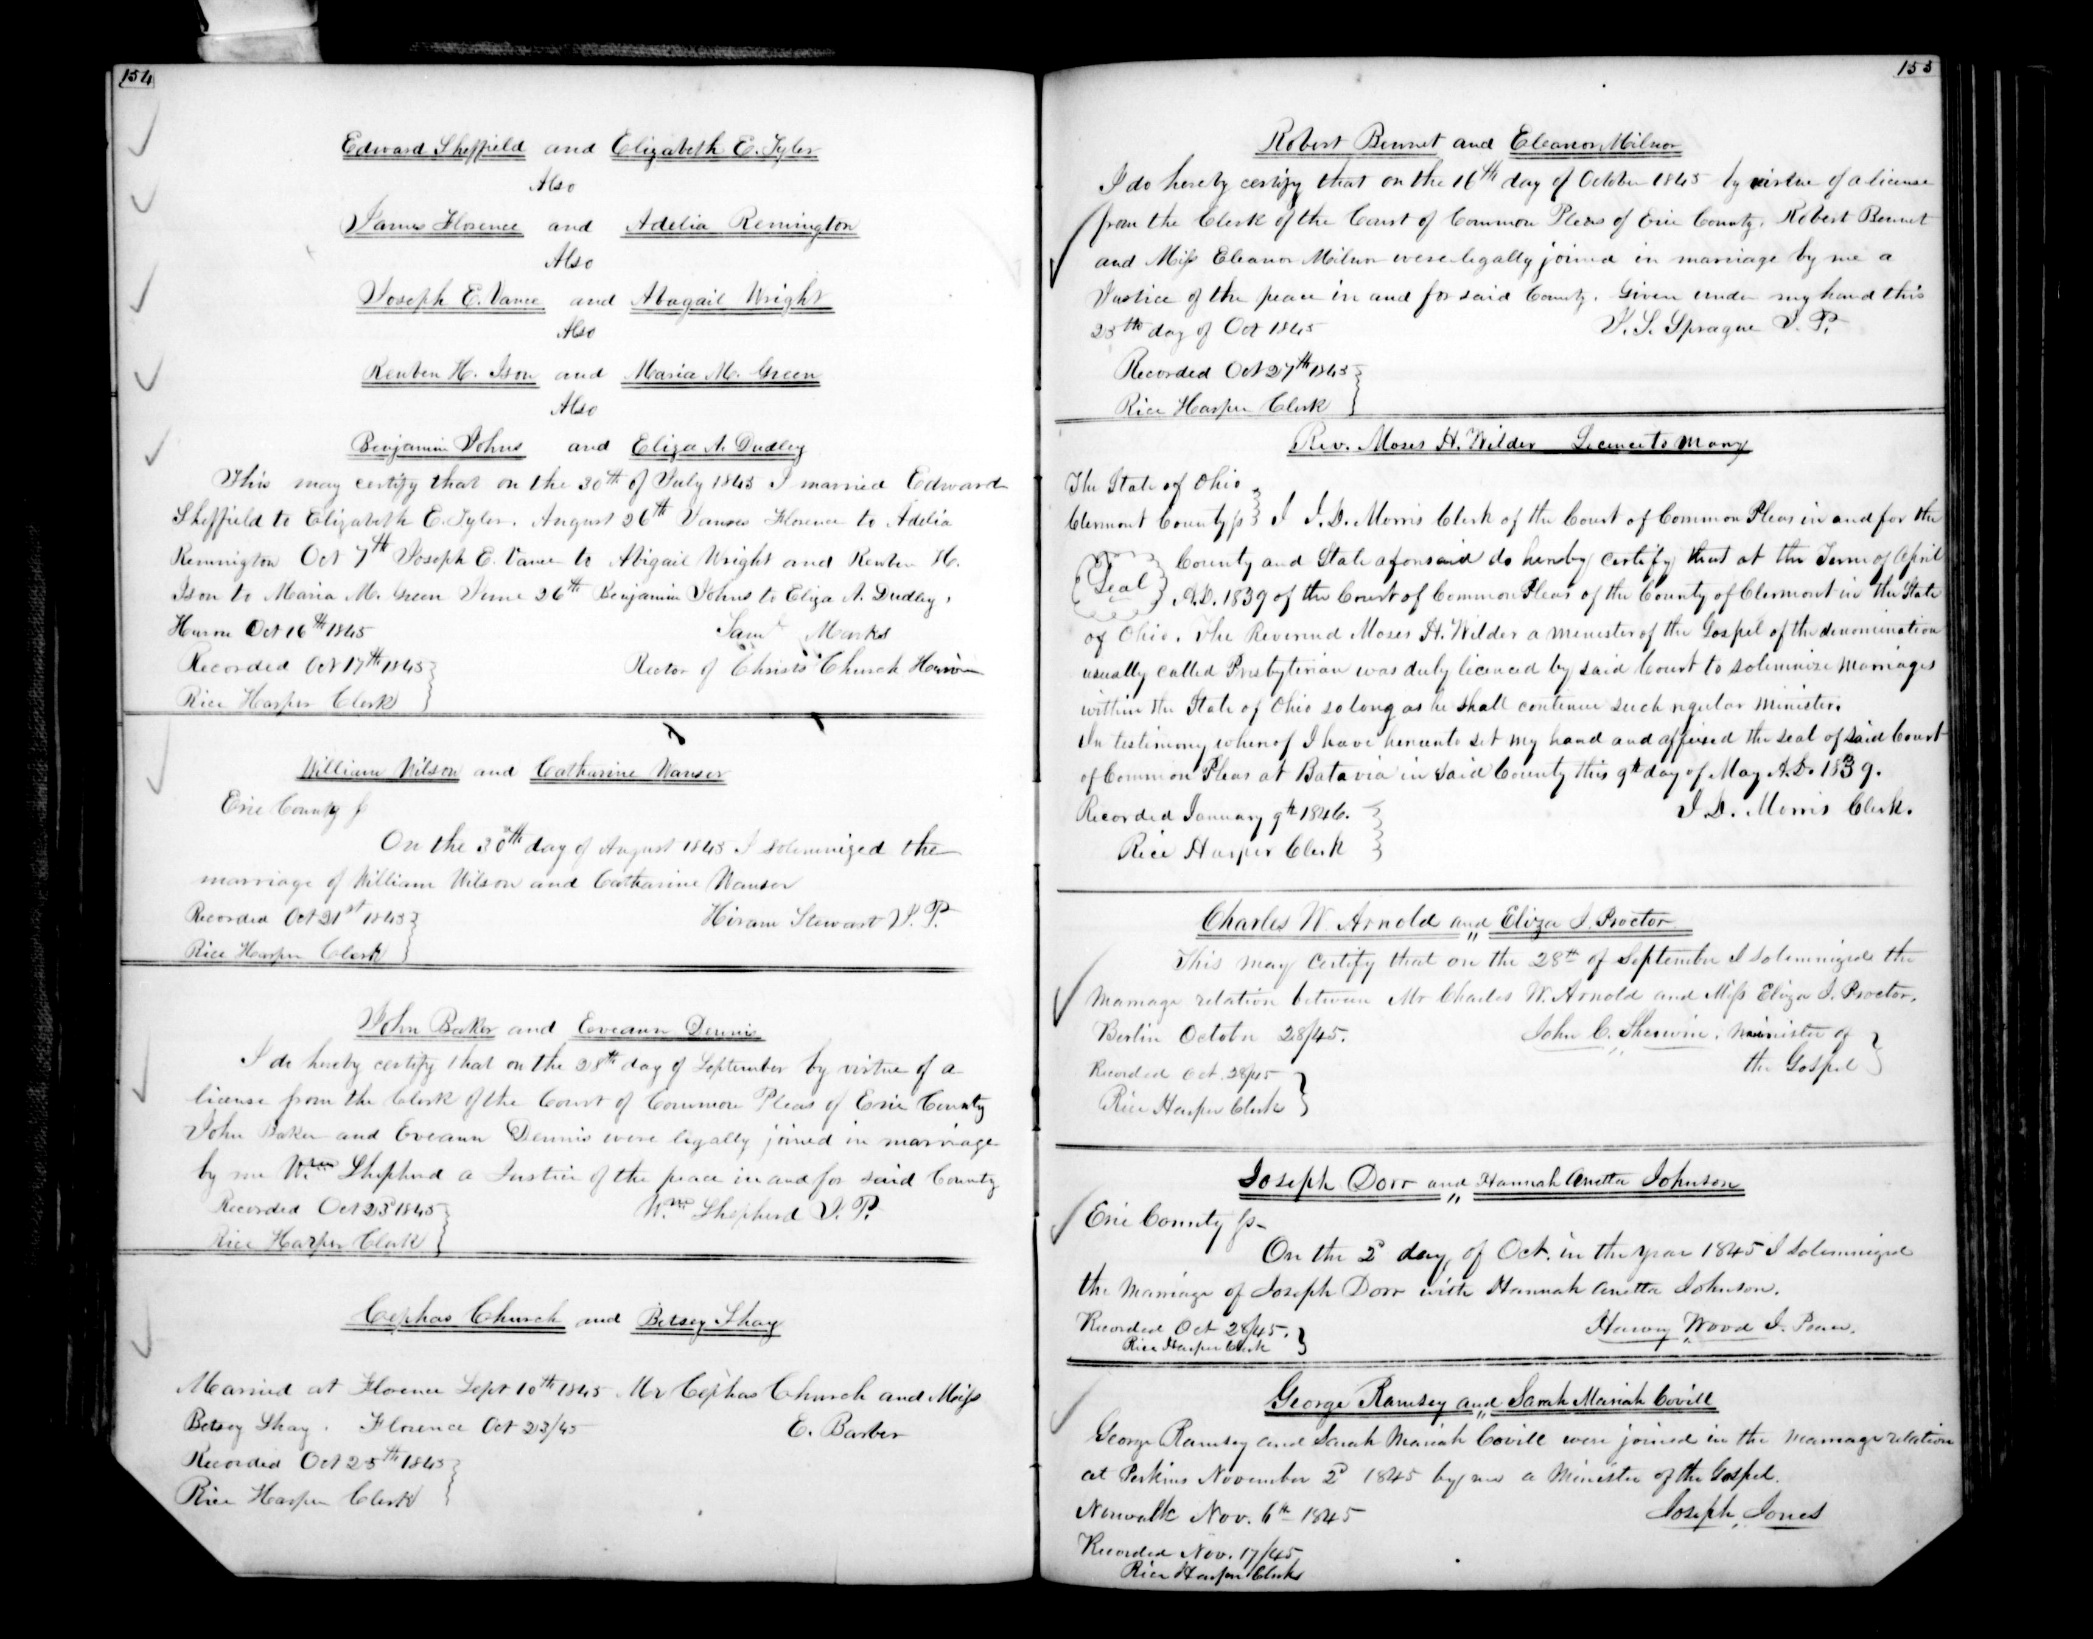 154
Edward Sheffield and Elizabeth E. Tyler
Also
James Florence and Adelia Remington
Also
Joseph E. Vance and Abagail Wright
Also
Reuben H. Ison and Maria M. Green
Also
Benjamin Johns and Eliza A. Dudley
This may certify that on the 30th of July 1845 I married Edward
Sheffield to Elizabeth E. Tyler. August 26th James Florence to Adelia
Remington Oct 7th Joseph E. Vance to Abigail Wright and Reuben H.
Ison to Maria M. Green June 26th Benjamin Johns to Eliza A. Dudley,
Huron Oct 16th 1845 Saml Marks
Recorded Oct 17th 1845 Rector of Christs Church Huron
Rice Harper Clerk
William Wilson and Catharine Wanser
Erie County
On the 30th day of August 1845 I solemnized the
marriage of William Wilson and Catharine Wanser
Recorded Oct 21st 1845 Hiram Stewart J. P.
Rice Harper Clerk
John Baker and Eveann Dennis
I do hereby certify that on the 28th day of September by virtue of a
license from the Clerk of the Court of Common Pleas of Erie County
John Baker and Eveann Dennis were legally joined in marriage
by me Wm Shepherd a Justice of the peace in and for said County
Recorded Oct 23d 1845 Wm Shepherd J. P.
Rice Harper Clerk
Cephas Church and Betsey Shay
Married at Florence Sept 10th 1845 Mr Cephas Church and Miss
Betsey Shay. Florence Oct 23/45 E. Barber
Recorded Oct 25th 1845
Rice Harper Clerk
155
Robert Bennet and Eleanor Milnor
I do hereby certify that on the 16th day of October 1845 by virtue of a license
from the Clerk of the Court of Common Pleas of Erie County. Robert Bennet
and Miss Eleanor Milnor were legally joined in marriage by me a
Justice of the peace in and for said County. Given under my hand this
25th day of Oct 1845 F. S. Sprague J. P.
Recorded Oct 27th 1845
Rice Harper Clerk
Rev. Moses H. Wilder Licence to Marry
The State of Ohio
Clermont County ss I J. D. Morris Clerk of the Court of Common Pleas in and for the
Seal County and State aforesaid do hereby certify that at the Term of April
A.D. 1839 of the Court of Common Pleas of the County of Clermont in the State
of Ohio. The Reverend Moses H. Wilder a menister of the Gospel of the denomination
usually called Presbyterian was duly licenced by said Court to solemnize marriages
within the State of Ohio so long as he shall continue such regular minister.
In testimony whereof I have hereunto set my hand and affixed the seal of said Court
of Common Pleas at Batavia in said County this 9th day of May A.D. 1839.
Recorded January 9th 1846. J. D. Morris Clerk.
Rice Harper Clerk
Charles W. Arnold and Eliza J. Proctor
This may certify that on the 28th of September I solemnized the
Marriage relation between Mr Charles W. Arnold and Miss Eliza J. Proctor.
Berlin October 28/45. John C. Sherwin, Minister of
Recorded Oct. 28/45 the Gospel
Rice Harper Clerk
Joseph Dorr and Hannah Anetta Johnson
Erie County ss
On the 2d day of Oct. in the year 1845 I solemnized
the marriage of Joseph Dorr with Hannah Anetta Johnson.
Recorded Oct 28/45. Harvey Wood J. Peace.
Rice Harper Clerk
George Ramsey and Sarah Mariah Covill
George Ramsey and Sarah Mariah Covill were joined in the marriage relation
at Perkins November 2d 1845 by me a Minister of the Gospel.
Norwalk Nov. 6th 1845 Joseph Jones
Recorded Nov. 17/45
Rice Harper Clerk